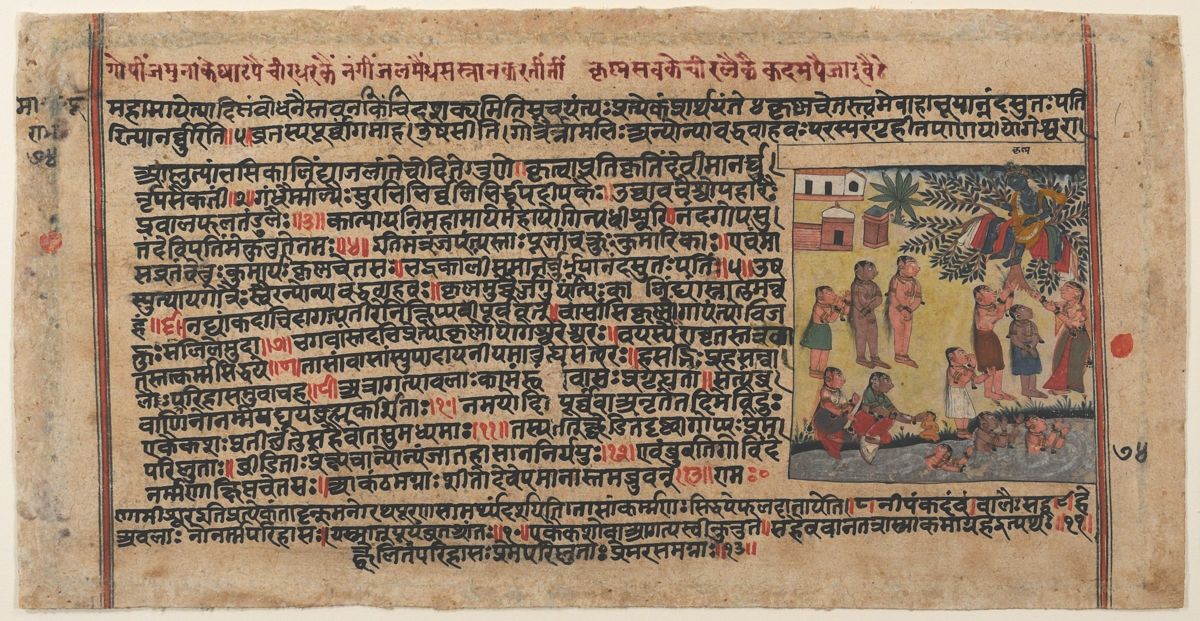 गोपीं जमुनाके घाट पै चीर धरकैं नगीं जल मैं धस स्नान करतीं तीं कृष्ण सब के चीर लै कै कदम पै जा
महामायेत्यादिसंबोधनैस्तव न किंचिदशक्यमितिसूचयंत्यः प्रत्येकं प्रार्थयंते ४ कृष्णचेतस्त्वमेवाह भूयान्नंदसुतः पति
५ व्रजस्य पूर्वागमाह उषसीति गोत्रैर्नामभिः अन्योन्याबद्धबाहवः परस्परगृहीतपाणयः
कृष्ण
आप्लुत्यांभसि कालिंद्या जलांते चोदितेरुणे कृत्वा प्रतिकृतिं देवीमानर्चु
र्नृप सैकतीं ॥२॥ गंधैर्माल्यैः सुरभिभिर्बलिभिर्धूपदीपकैः उच्चावचैश्चोपहारैः
प्रवालफलतंडुलैः ॥३॥ कात्यायनि महामाये महायोगिन्यधीश्वरि नंदगोपसु
तं देवि पतिं मे कुरु ते नमः ॥४॥ इति मंत्रं जपंत्यस्ताः पूजां चक्रुः कुमारिकाः एवं मा
सं व्रतं चेरुः कुमार्यः कृष्णचेतसः भद्रकालीं समानर्चुर्भूयान्नंदसुतः पतिः ॥५॥ उष
स्युत्थाय गोत्रैः स्वैरन्योन्याबद्धबाहवः कृष्णमुच्चैर्जगुर्यांत्यः कालिंद्यां स्नातुमन्व
हं ॥६॥ नद्यां कदाचिदागत्य तीरे निक्षिप्य पूर्ववत् वासांसि कृष्णं गायंत्यो विज
ह्रुः सलिले मुदा ॥७॥ भगवांस्तदभिप्रेत्य कृष्णो योगेश्वरेश्वरः वयस्यैरावृतस्तत्र
तत्कर्मसिद्धये ॥८॥ तासां वासांस्युपादाय नीपमारुह्य सत्वरः हसद्भिः प्रहसन्बा
लैः परिहासमुवाच ह ॥९॥ अत्रागत्याबलाः कामं स्वं वासः प्रगृह्यतां सत्यं ब्रु
वाणि नो नर्म यद्यूयं व्रतकर्शिताः ॥१०॥ न मयोदि पूर्वं वा अनृतं तदिमे विदुः
एकैकशः प्रतीच्छंतु सहैवोत सुमध्यमाः ॥११॥ तस्य तत् क्ष्वेडितं दृष्ट्वा गोप्यः प्रेम
परिप्लुताः व्रीडिताः प्रेक्ष्य चान्योन्यं जातहासा न निर्ययुः ॥१२॥ एवं ब्रुवति गोविंदे
नर्मणाक्षिप्तचेतसः आकंठमग्नाः शीतोदे वेपमानास्तमब्रुवन् ॥१३॥ राम
७४
७४
नीपं कदंबं बालैः सह ८
अबलाः नर्म परिहासः
क्ष्वेलितं परिहासः प्रेमपरिप्लुताः प्रेमरसमग्नाः ॥१३॥